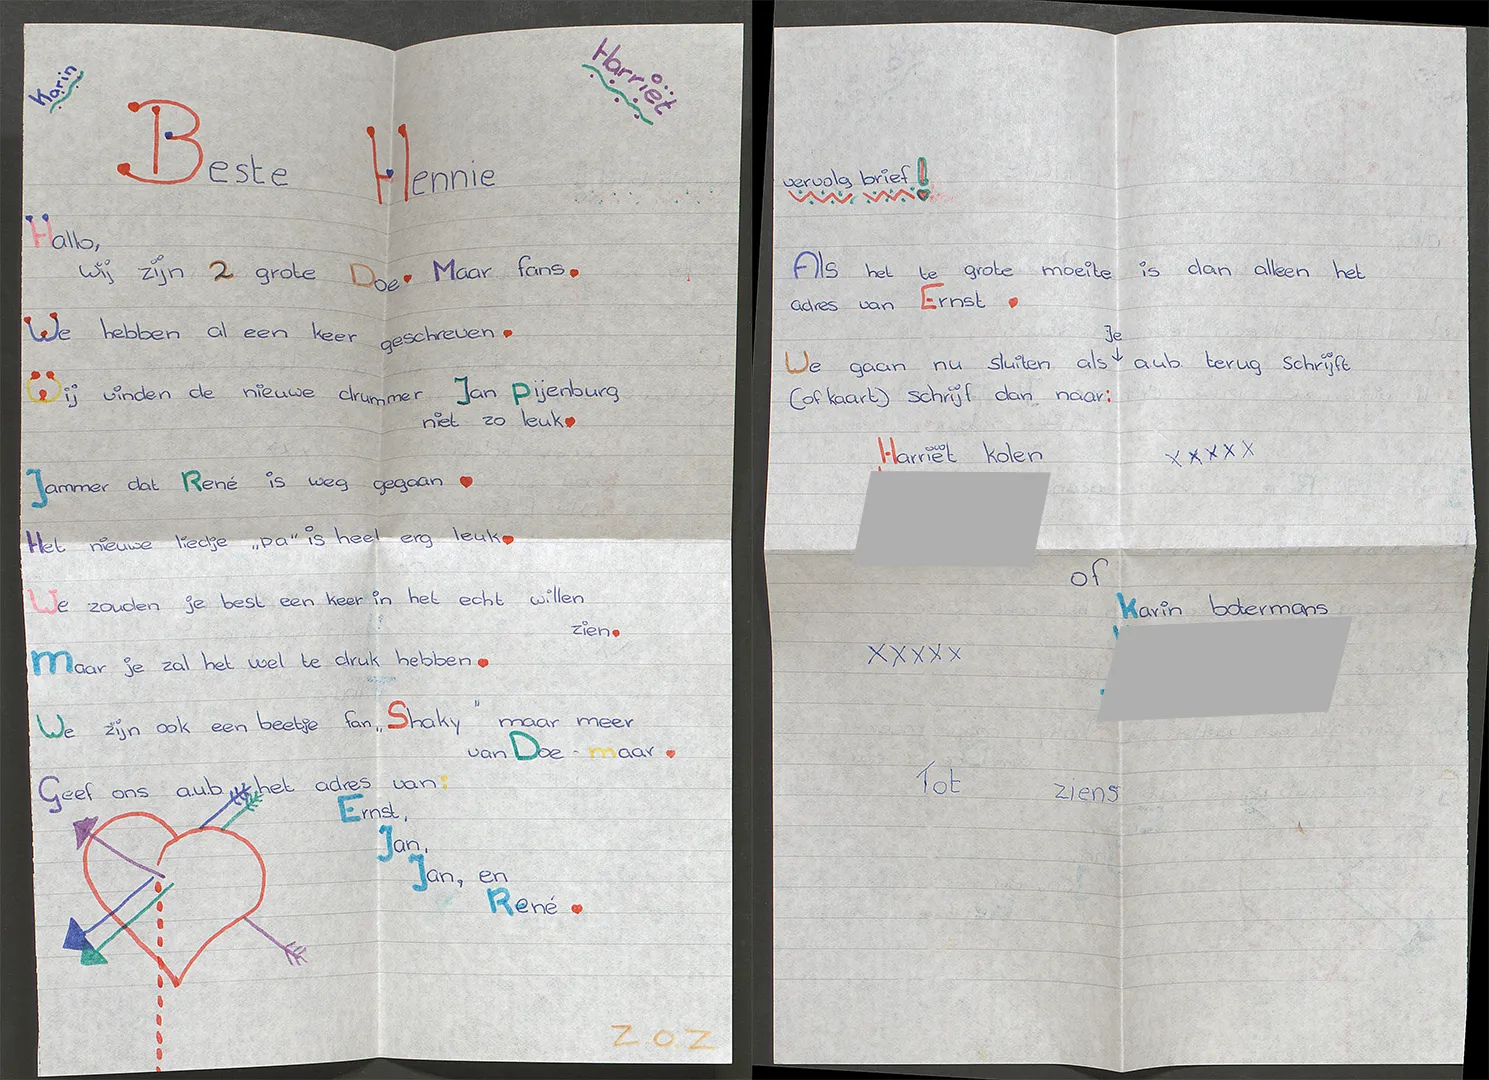 Karin
Harriët
Beste Hennie
Hallo,
wij zijn 2 grote Doe Maar fans.
We hebben al een keer geschreven.
Wij vinden de nieuwe drummer Jan Pijenburg
niet zo leuk.
Jammer dat René is weg gegaan.
Het nieuwe liedje „pa" is heel erg leuk.
We zouden je best een keer in het echt willen
zien.
Maar je zal het wel te druk hebben.
We zijn ook een beetje fan „Shaky" maar meer
van Doe-maar.
Geef ons aub het adres van:
Ernst,
Jan,
Jan, en
René.
Z.O.Z
vervolg brief!
Als het te grote moeite is dan alleen het
adres van Ernst.
Je
We gaan nu sluiten als ↓ aub. terug schrijft
(of kaart) schrijf dan naar:
Harriët kolen xxxxx
of
Karin botermans
xxxxx
Tot ziens